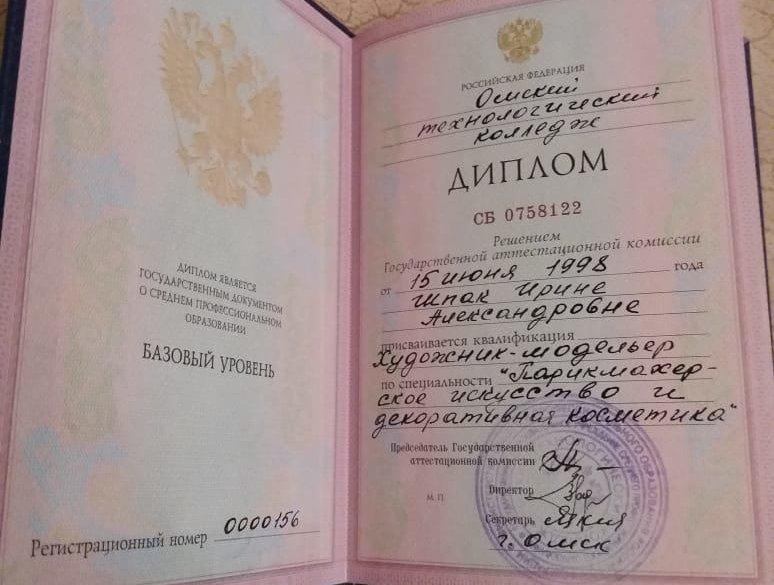 ДИПЛОМ ЯВЛЯЕТСЯ
ГОСУДАРСТВЕННЫМ ДОКУМЕНТОМ
О СРЕДНЕМ ПРОФЕССИОНАЛЬНОМ
ОБРАЗОВАНИИ
БАЗОВЫЙ УРОВЕНЬ
Регистрационный номер 0000156
РОССИЙСКАЯ ФЕДЕРАЦИЯ
Омский
технологический
колледж
ДИПЛОМ
СБ 0758122
Решением
Государственной аттестационной комиссии
от 15 июня 1998 года
Шпак Ирине
Александровне
присваивается квалификация
Художник-модельер
по специальности "Парикмахер-
ское искусство и
декоративная косметика"
Председатель Государственной
аттестационной комиссии
Директор
М. П.
Секретарь
г. Омск